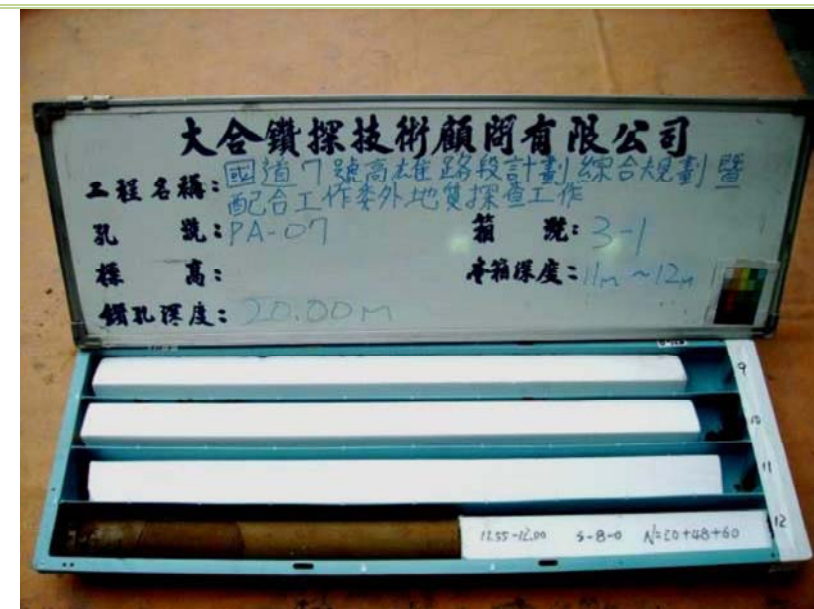 大合鑽探技術顧問有限公司
工程名稱：國道7號高雄路段計劃綜合規劃暨
配合工作委外地質探查工作
孔 號：PA-07 箱 號：3-1
標 高： 本箱深度：11m~12m
鑽孔深度：20.00m
9
10
11
11.55-12.00 S-8-0 N=20+48+60 12